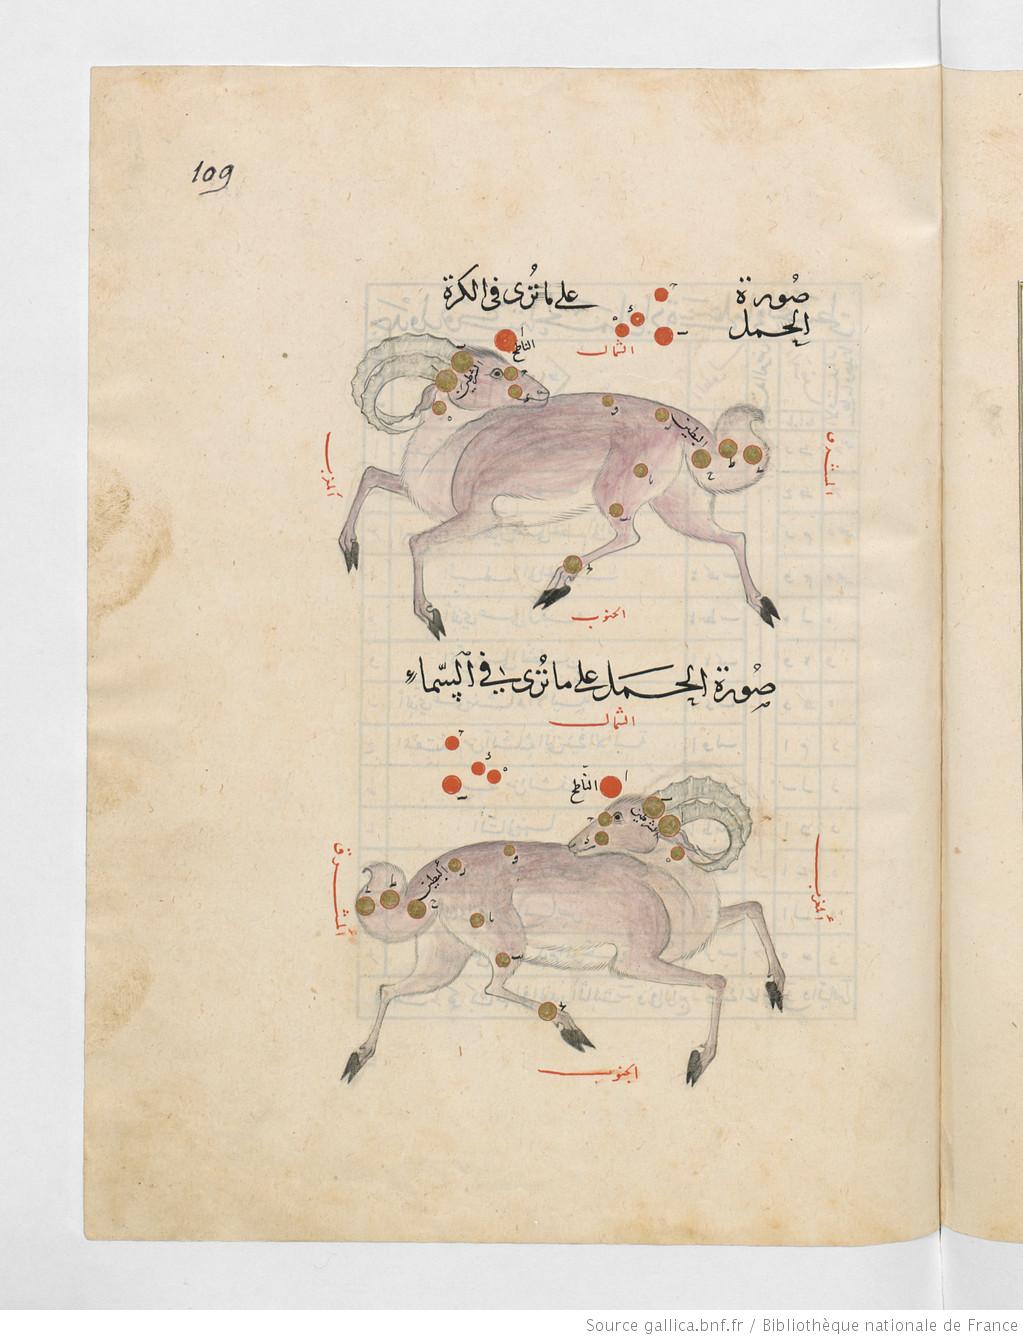 109
صُورة على ما تُرى فى الكرة
الحمل
الناطح
الشمال
الشرطين
البطين
المغرب
المشرق
الجنوب
صُورة الحمل على ما تُرى فى السّماء
الشمال
الناطح
الشرطين
البطين
المشرق
المغرب
الجنوب
Source gallica.bnf.fr / Bibliothèque nationale de France